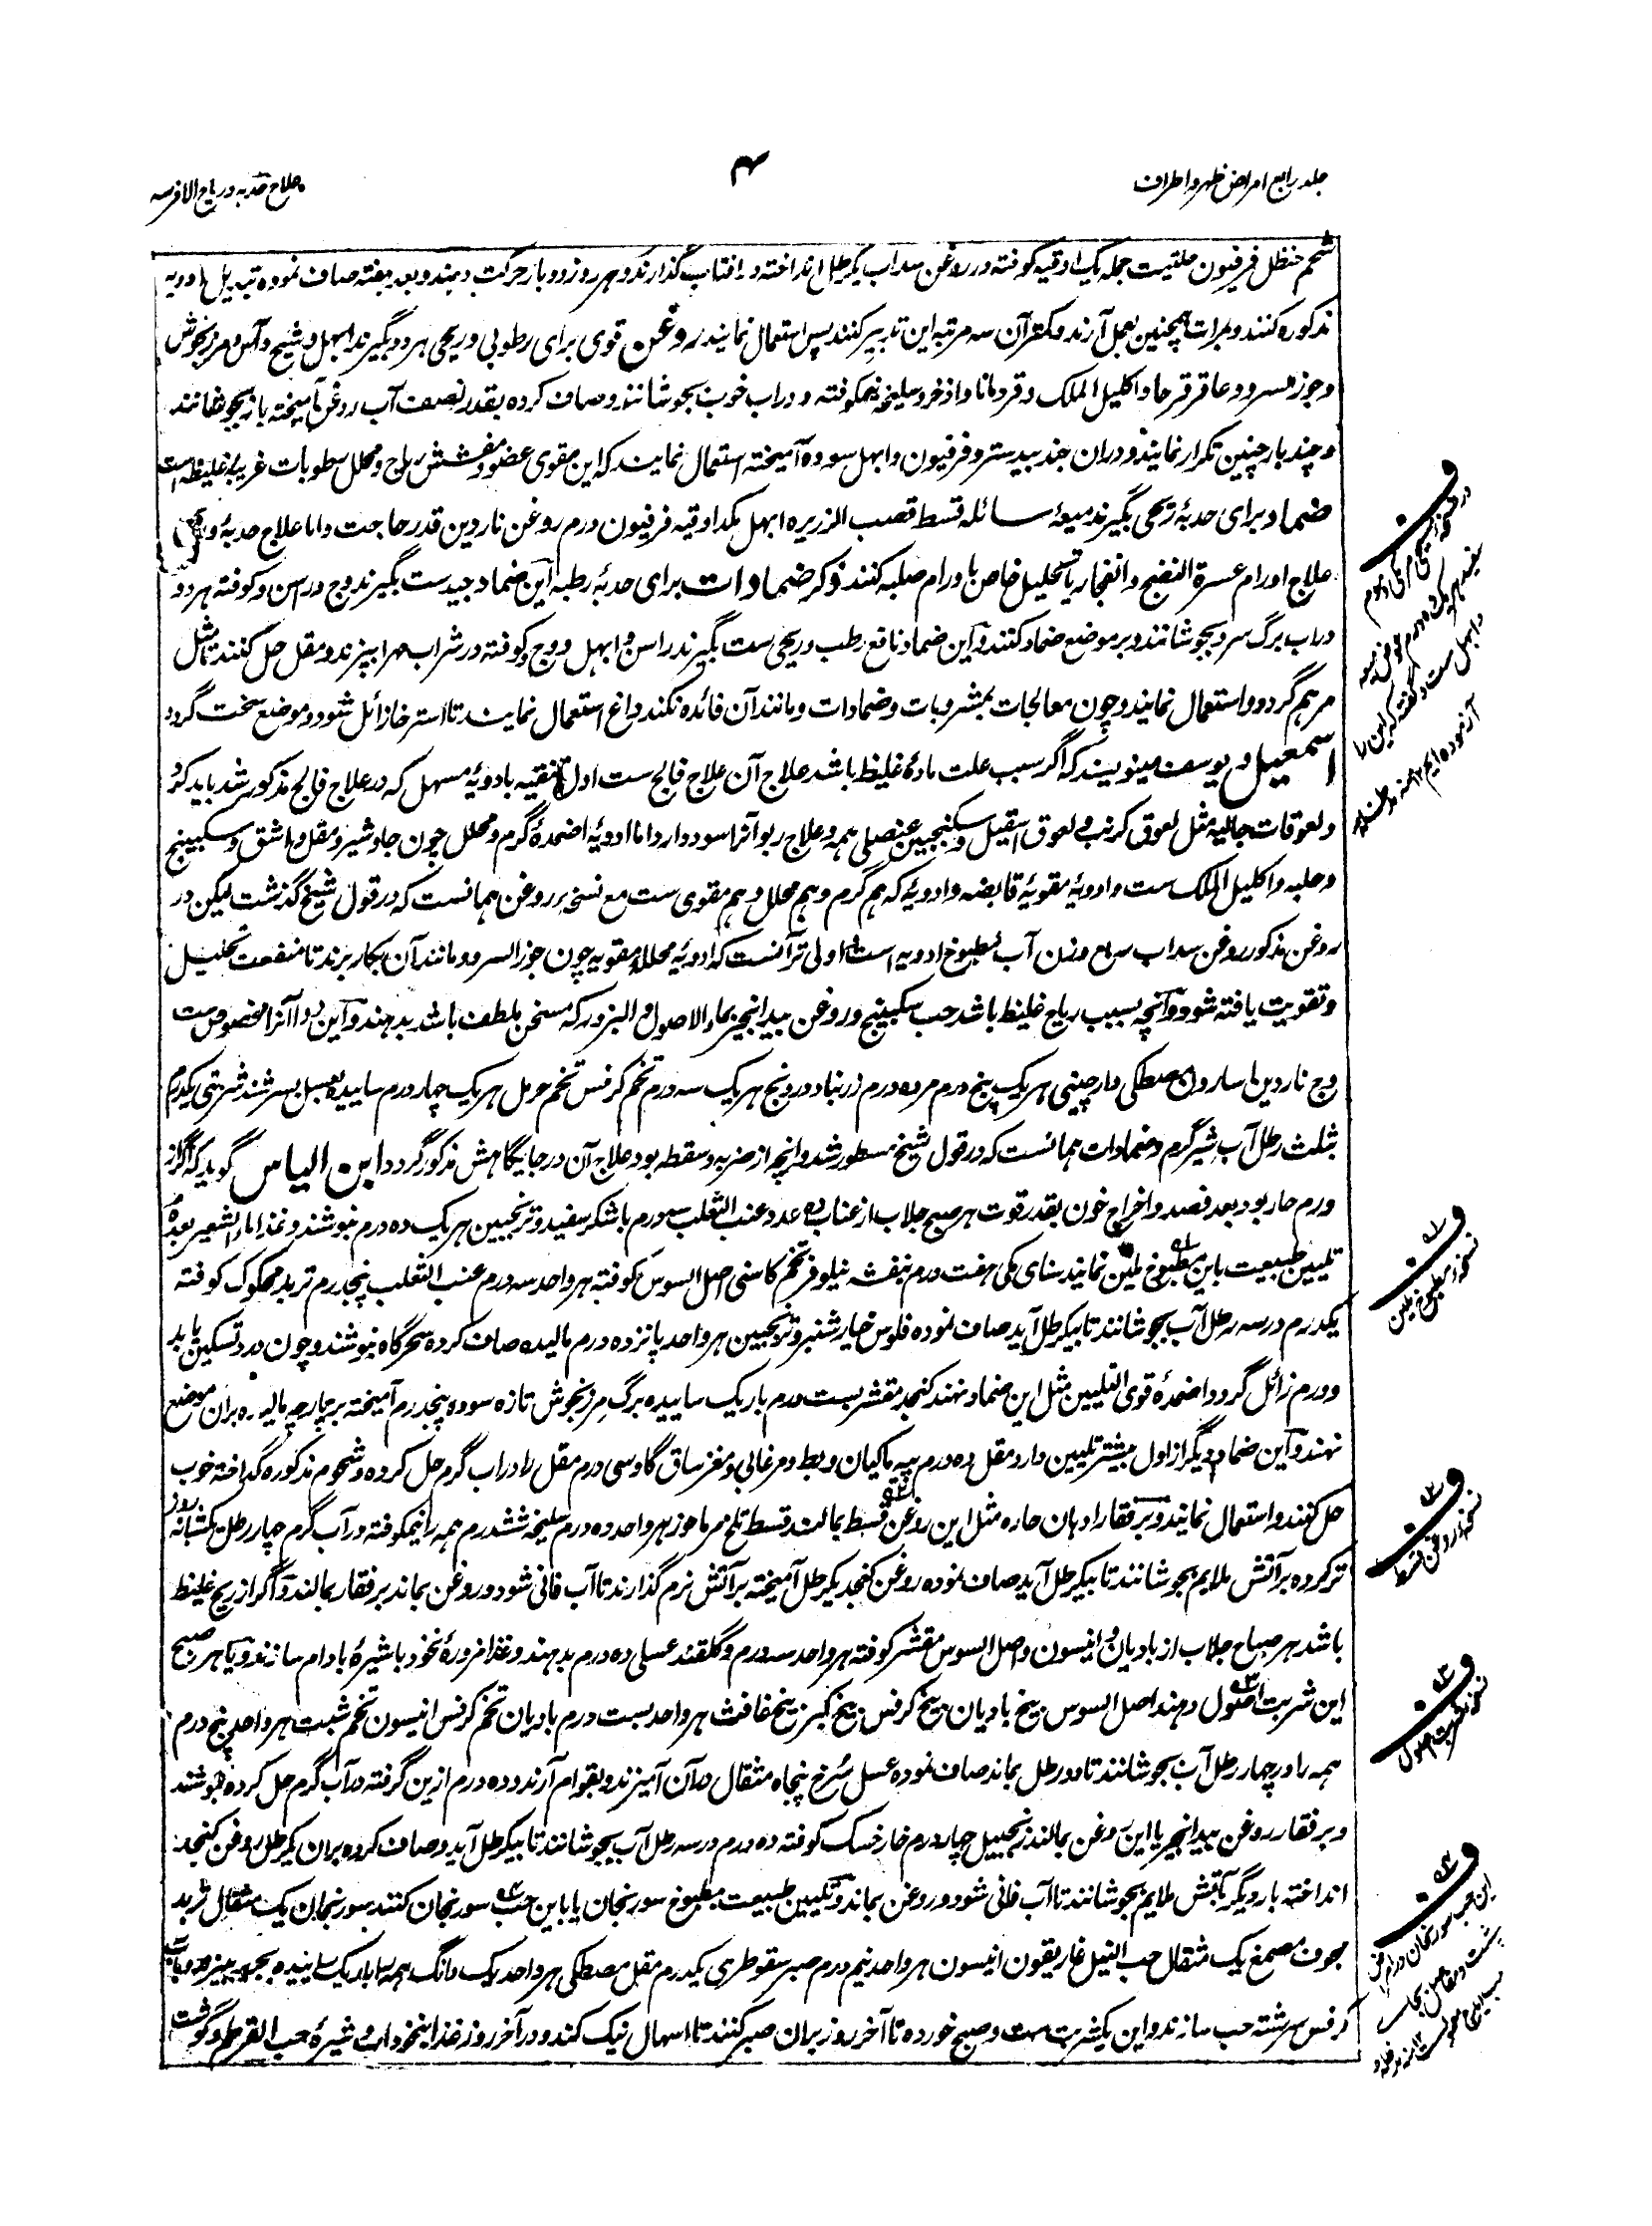 جلد رابع امراض ظهر و اطراف
۴
علاج حدبه و ریاح الافرسه
شحم حنظل فرفیون حلتیت جمله یک اوقیه کوفته در روغن سداب یکرطل انداخته در افتاب گذارند و هر روز دو بار حرکت دهند و بعد هفته صاف نموده تبدیل ادویه
مذکوره کنند و بمرات همچنین بعمل آرند و کمتر آن سه مرتبه این تدبیر کنند پس استعمال نمایند روغن قوی برای رطوبی و ریحی هر دو بگیرند ابهل و شیح و آس و مرزنجوش
و جوز سرو و عاقرقرحا و اکلیل الملک و قردمانا و اذخر و سلیخه نیمکوفته و در اب خوب بجوشانند و صاف کرده بقدر نصف آب روغن آمیخته باز بجوشانند
و چند بار چنین تکرار نمایند و دران جند بیدستر و فرفیون و ابهل سوده آمیخته استعمال نمایند که این مقوی عضو و مفشش ریاح و محلل رطوبات غریبه غلیظه است
ضماد برای حدبهٔ ریحی بگیرند میعهٔ سائله قسط قصب الزریره ابهل یکد اوقیه فرفیون درم روغن ناردین قدر حاجت و اما علاج حدبهٔ ورمی
علاج اورام عسرة النضج و انفجار یا تحلیل خاص باورام صلبه کنند ذکر ضمادات برای حدبهٔ رطبه این ضماد جید ست بگیرند وج و راسن و کوفته هر دو
در اب برگ سرو بجوشانند و بر موضع ضماد کنند و آین ضماد نافع رطب و ریحی ست بگیرند راسن و ابهل و وج و کوفته در شراب مهرا بپزند و مقل حل کنند تا مثل
مرهم گردد و استعمال نمایند و چون معالجات بمشروبات و ضمادات و مانند آن فائده نکند داغ استعمال نمایند تا استرخا زائل شود و موضع سخت گردد
اسمعیل و یوسف مینویسند که اگر سبب علت مادهٔ غلیظ باشد علاج آن علاج فالج ست اول تنقیه بادویهٔ مسهل که در علاج فالج مذکور شد باید کرد
و لعوقات جالیه مثل لعوق کرنب و لعوق اسقیل و سکنجبین عنصلی همه و علاج ربو آنرا سود دارد و اما ادویهٔ اضمدهٔ گرم و محلل چون جاوشیر و مقل و اشق و سکبینج
و حلبه و اکلیل الملک ست و ادویهٔ مقویهٔ قابضه و ادویه که هم گرم و هم محلل و هم مقوی ست مع نسخهٔ هر روغن همانست که در قول شیخ گذشت لیکن در
روغن مذکور روغن سداب ربع وزن آب مطبوخ ادویه است و اولی تر آنست که ادویهٔ محلله مقویه چون جوز السرو و مانند آن بکار برند تا منفعت تحلیل
و تقویت یافته شود و آنچه بسبب ریاح غلیظ باشد حب سکبینج و روغن بیدانجیر بماء الاصول و البزور که مسخن ملطف باشد بدهند و آین دوا آنرا مخصوص ست
وج ناردین اسارون مصطکی دارچینی هر یک پنج درم مر ده درم زرنباد درونج هر یک سه درم تخم کرفس تخم حرمل هر یک چهار درم ساییده بعسل بسرشند شربتی یکدرم
بثلث رطل آب شیر گرم و ضمادات همانست که در قول شیخ مسطور شد و انچه از ضربه و سقطه بود علاج آن در جایگاهش مذکور گردد ابن الیاس گوید که اگر از
ورم حار بود بعد فصد و اخراج خون بقدر قوت هر صبح جلاب از عناب ده عدد عنب الثعلب سه درم با شکر سفید و ترنجبین هر یک ده درم بنوشند و غذا ماء الشعیر بعده
تلیین طبیعت باین مطبوخ ملین نمایند سنای مکی هفت درم بنفشه نیلوفر تخم کاسنی اصل السوس کوفته هر واحد سه درم عنب الثعلب پنجدرم تربد محکوک کوفته
یکدرم در سه رطل آب بجوشانند تا بیکرطل آید صاف نموده فلوس خیارشنبر و ترنجبین هر واحد پانزده درم مالیده صاف کرده سحرگاه بنوشند و چون درد تسکین یابد
و ورم زائل گردد اضمدهٔ قوی التلیین مثل این ضماد نهند کنجد مقشر بست درم باریک ساییده برگ مرزنجوش تازه سوده پنجدرم آمیخته بر پارچه مالیده بران موضع
نهند و آین ضماد دیگر از اول بیشتر تلیین دارد مقل ده درم پیه ماکیان و بط و مرغابی و مغز ساق گاو سی درم مقل را در اب گرم حل کرده و شحوم مذکوره گداخته خوب
حل کنند و استعمال نمایند و بر فقار ادهان حاره مثل این روغن قسط بمالند قسط تلخ مرماحوز هر واحد ده درم سلیخه ششدرم همه را نیمکوفته در آب گرم چهار رطل یکشبانه روز
تر کرده بر آتش ملایم بجوشانند تا بیکرطل آید صاف نموده روغن کنجد یکرطل آمیخته بر آتش نرم گذارند تا آب فانی شود و روغن بماند بر فقار بمالند و آگر از ریح غلیظ
باشد هر صباح جلاب از بادیان و انیسون و اصل السوس مقشر کوفته هر واحد سه درم و گلقند عسلی ده درم بدهند و غذا مزورهٔ نخود با شیرهٔ بادام سازند و یا هر صبح
این شربت اصول دهند اصل السوس بیخ بادیان بیخ کرفس بیخ کبر بیخ غافث هر واحد بست درم بادیان تخم کرفس انیسون تخم شبت هر واحد پنج درم
همه را در چهار رطل آب بجوشانند تا دو رطل بماند صاف نموده عسل سرخ پنجاه مثقال در آن آمیزند و بقوام آرند و ده درم ازین گرفته در آب گرم حل کرده بنوشند
و بر فقار روغن بیدانجیر یا این روغن بمالند زنجبیل چهار درم خار خسک کوفته ده درم در سه رطل آب بجوشانند تا بیکرطل آید و صاف کرده بران یکرطل روغن کنجد
انداخته بار دیگر بآتش ملایم بجوشانند تا آب فانی شود و روغن بماند و تلیین طبیعت بمطبوخ سورنجان یا باین حب سورنجان کنند سورنجان یک مثقال تربد
مجوف مصمغ یک مثقال حب النیل غاریقون انیسون هر واحد نیم درم صبر سقوطری یکدرم مقل مصطکی هر واحد یک دانگ همه را باریک ساییده بحریر بیزند و بآب
کرفس سرشته حب سازند و این یکشربت ست و صبح خورده تا آخر روز بران صبر کنند تا اسهال نیک کند و در آخر روز غذا بنخوداب و شیرهٔ حب القرطم و گوشت
ف
ف
نسخهٔ مطبوخ ملین
ف
نسخهٔ روغن قسط
ف
نسخهٔ شربت اصول
ف